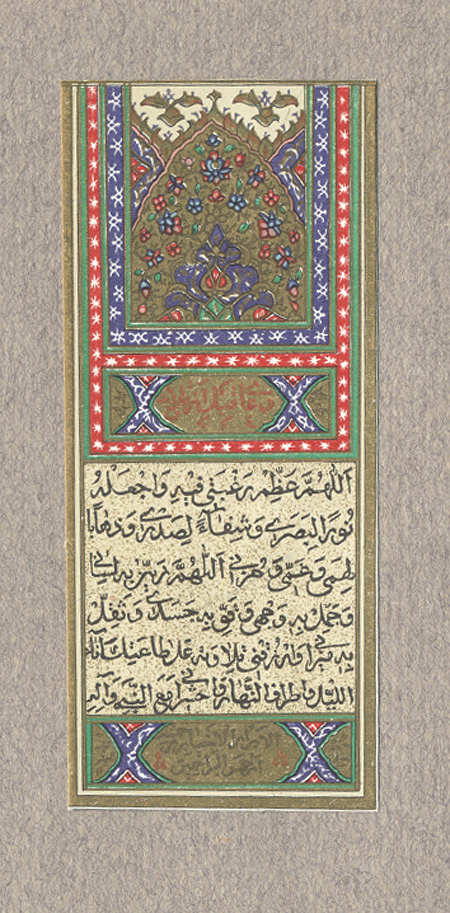 اَللّٰهُمَّ عَظِّمْ رَغْبَتى فيهِ وَاجْعَلْهُ
نُورًا لِبَصَرى وَشِفَاءً لِصَدْرى وَذهابًا
لِهَمّى وَغَمّى وَحُزنى اَللّٰهُمَّ زَيِّنْ بِهِ لِسانى
وَجَمِّل بِهِ وَجْهى وَقَوِّ بِهِ جَسَدى وَثَقِّلْ
بِهِ ميزانى وَارْزُقْنى تِلاوَتَهُ عَلى طاعَتِكَ اٰناءَ
اللَّيْلِ وَاَطرافَ النَّهارِ وَاحْشُرْنى مَعَ النَّبِىِّ وَاٰلِهِ